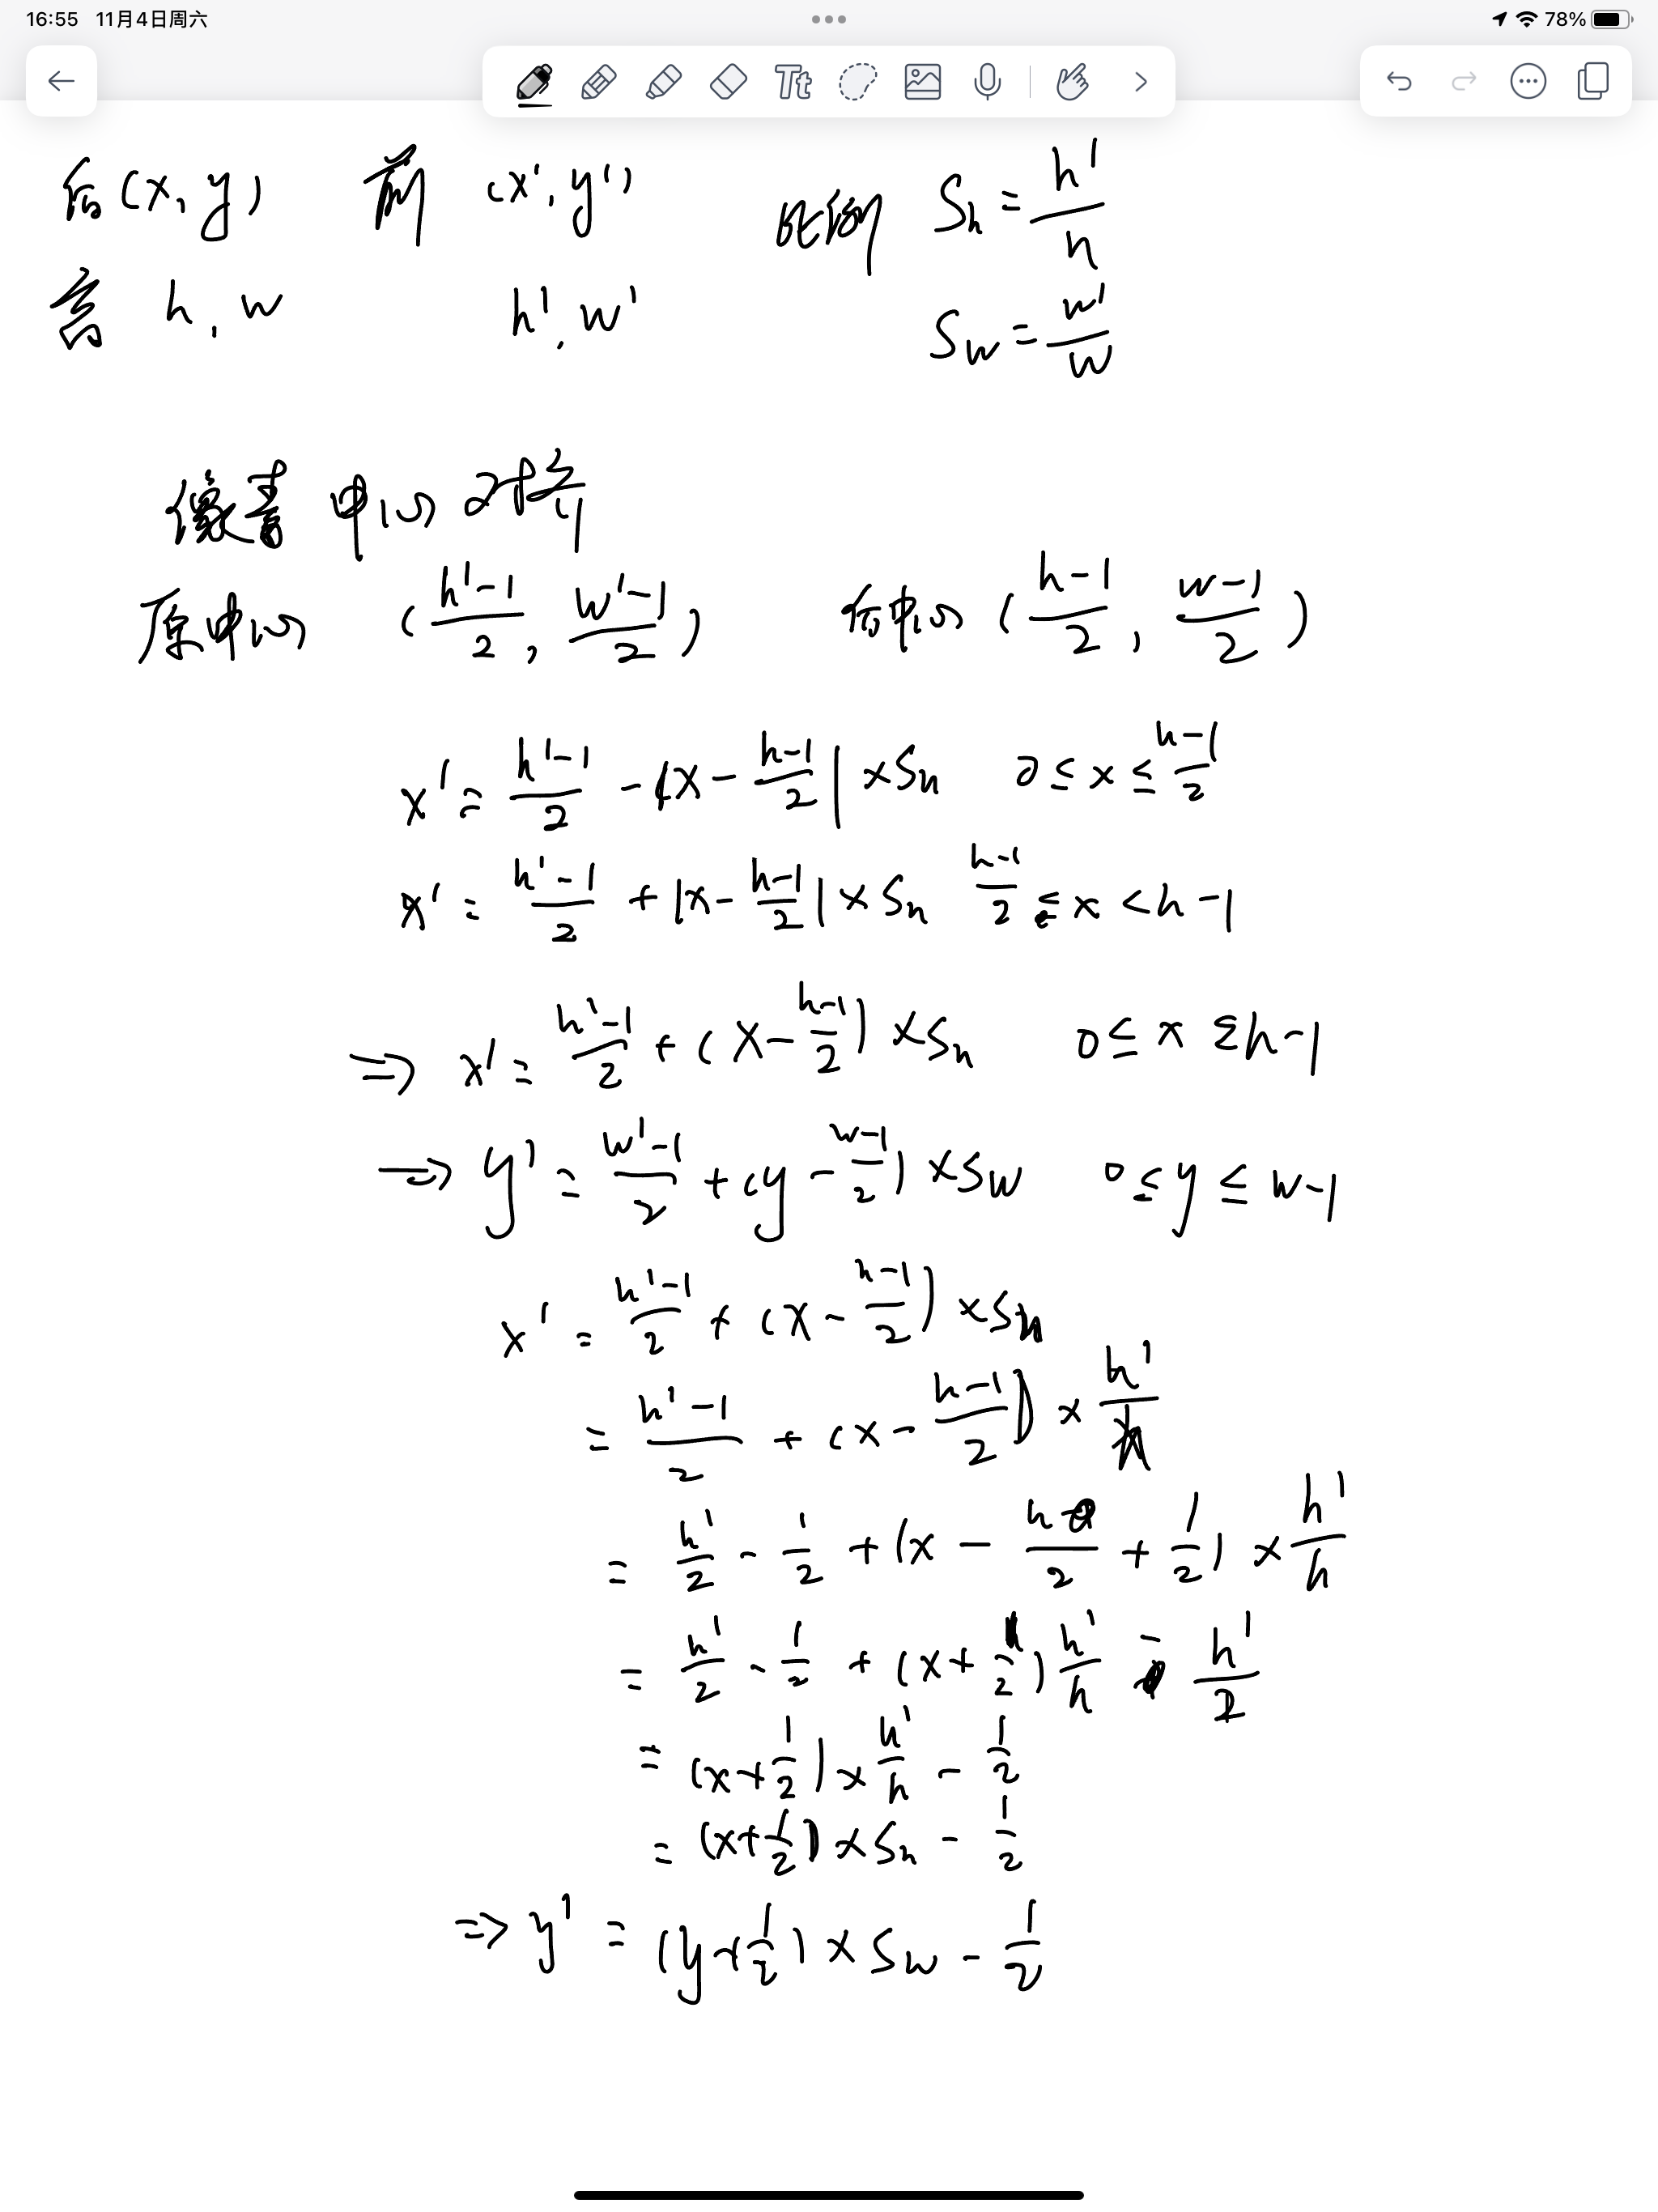 16:55 11月4日周六 78%
Tt
后(x,y) 前 (x',y') 比例 Sh = h'/h
高 h, w h', w' Sw = w'/w
像素中心对齐
原中心 ((h'-1)/2, (w'-1)/2) 后中心 ((h-1)/2, (w-1)/2)
x' = (h'-1)/2 - |x - (h-1)/2| × Sh 0 ≤ x ≤ (h-1)/2
x' = (h'-1)/2 + |x - (h-1)/2| × Sh (h-1)/2 ≤ x < h-1
⇒ x' = (h'-1)/2 + (x - (h-1)/2) × Sh 0 ≤ x ≤ h-1
⇒ y' = (w'-1)/2 + (y - (w-1)/2) × Sw 0 ≤ y ≤ w-1
x' = (h'-1)/2 + (x - (h-1)/2) × Sh
= (h'-1)/2 + (x - (h-1)/2) × h'/h
= h'/2 - 1/2 + (x - h/2 + 1/2) × h'/h
= h'/2 - 1/2 + (x + 1/2) h'/h - h'/2
= (x + 1/2) × h'/h - 1/2
= (x + 1/2) × Sh - 1/2
⇒ y' = (y + 1/2) × Sw - 1/2